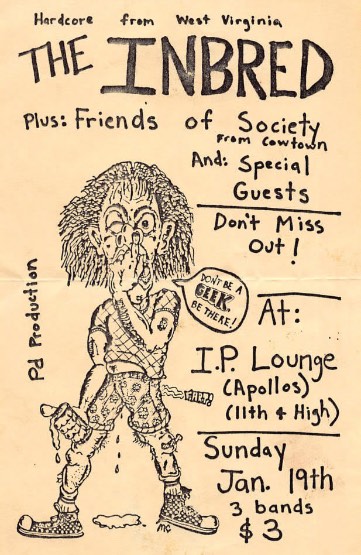 Hardcore from West Virginia
THE INBRED
Plus: Friends of Society
From Cowtown
And: Special
Guests
Don't Miss
Out!
DON'T BE A
GEEK,
BE THERE!
At:
I.P. Lounge
(Apollos)
(11th & High)
Sunday
Jan. 19th
3 bands
$3
Pd Production
MG